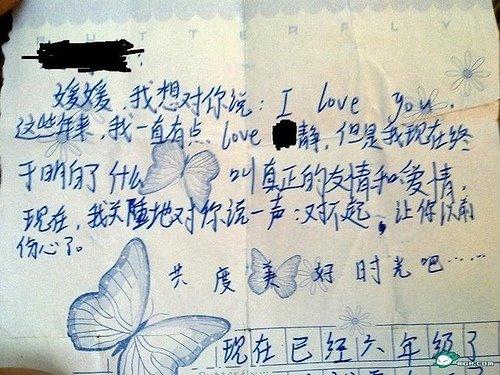 BUTTERFLY
媛媛,我想对你说:I love you.
这些年来,我一直有点love 静,但是我现在终
于明白了什么叫真正的友情和爱情,
现在,我隆地对你说一声:对不起,让你以前
伤心了。
共度美好时光吧……
现在已经六年级了
mop.com